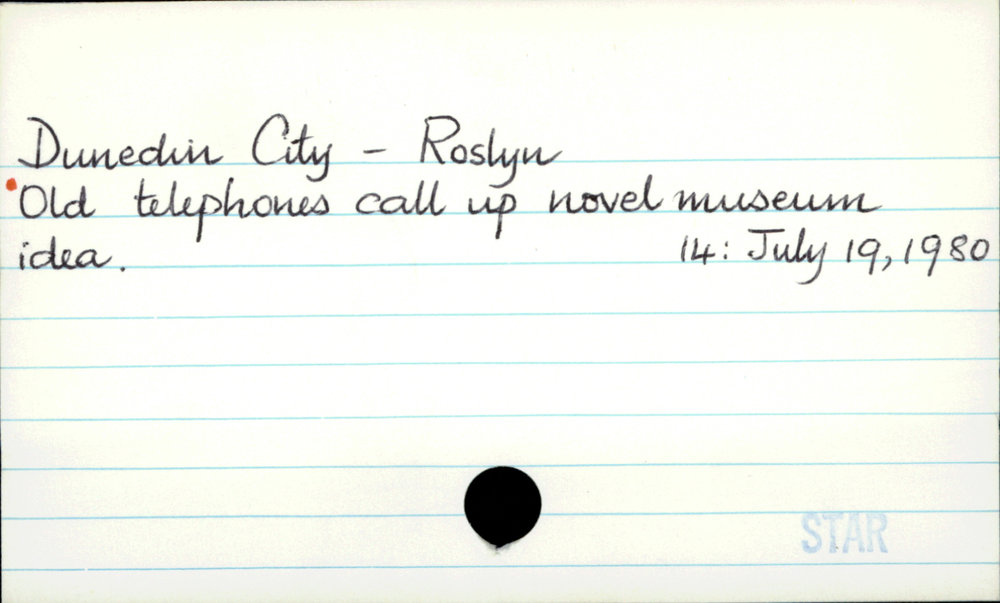 Dunedin City - Roslyn
Old telephones call up novel museum
idea. 14: July 19, 1980
STAR